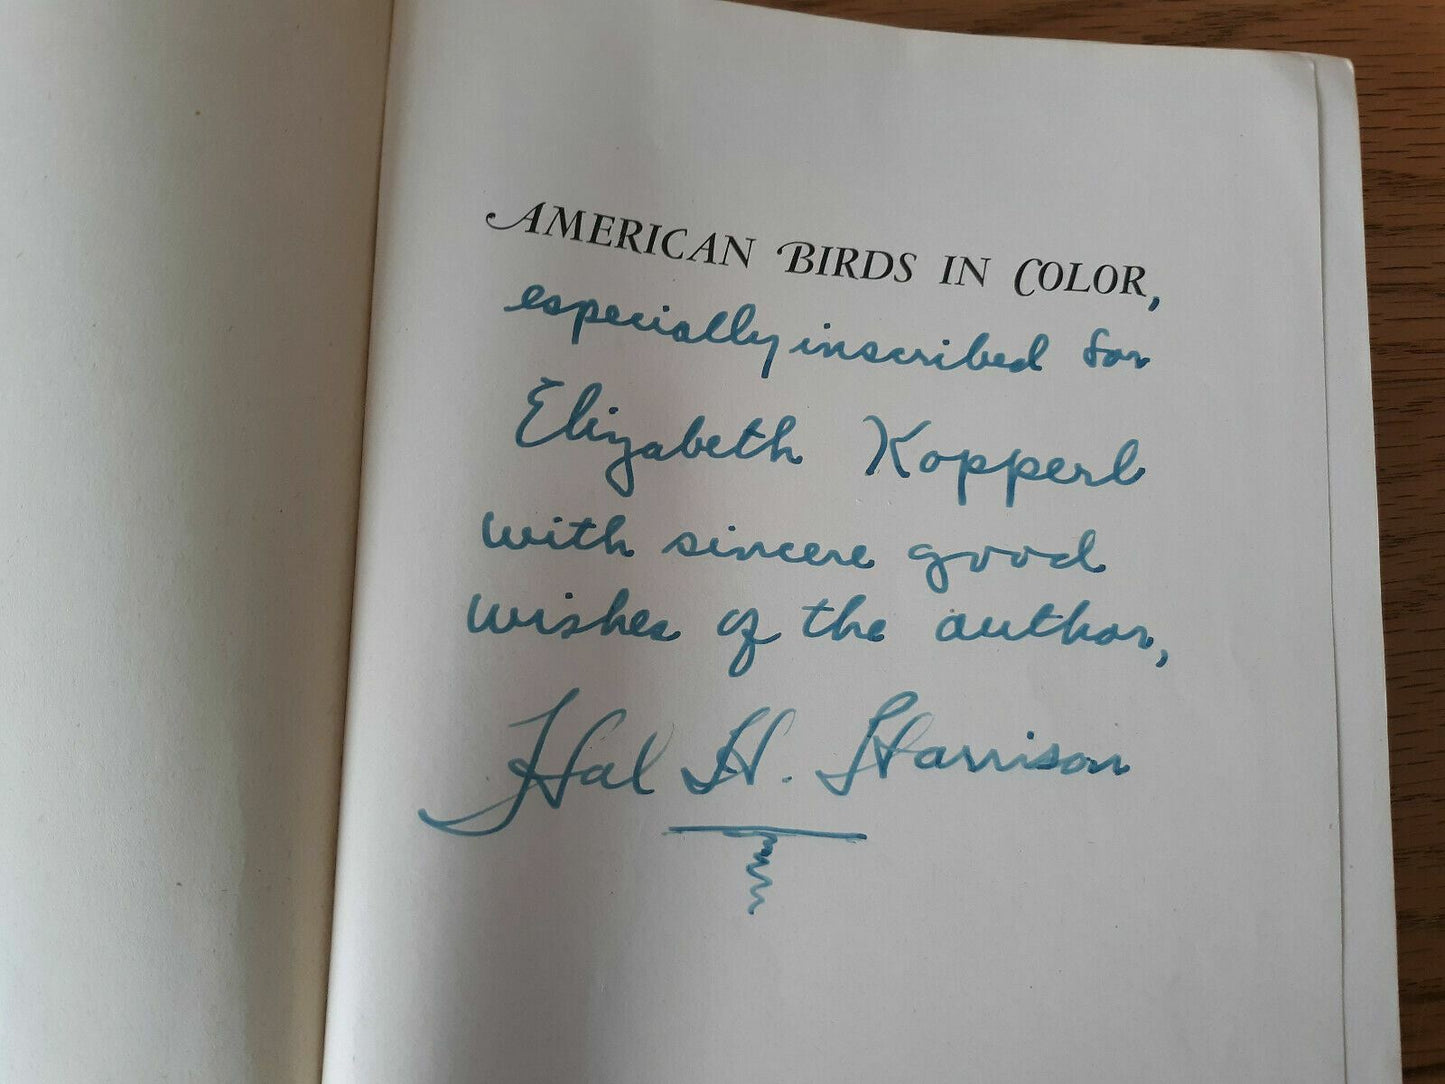 AMERICAN BIRDS IN COLOR,
especially inscribed for
Elizabeth Kopperl
with sincere good
wishes of the author,
Hal H. Harrison